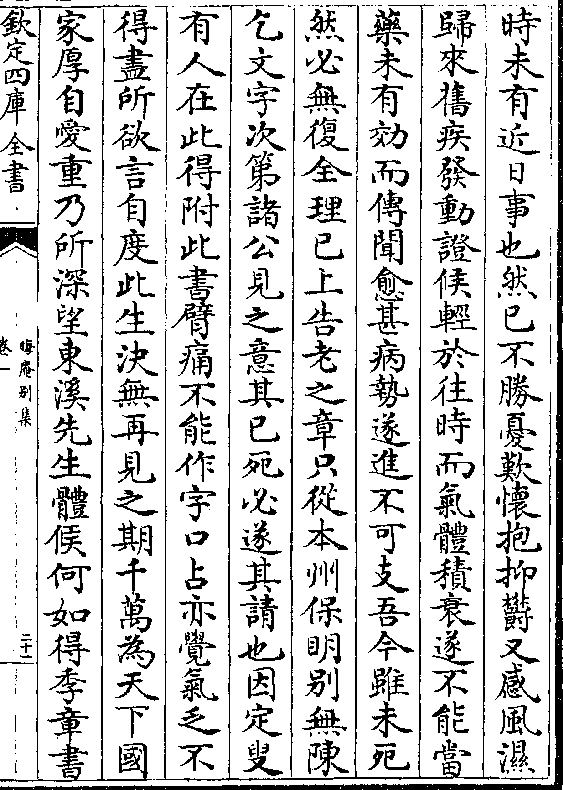 時未有近日事也然已不勝憂歎懷抱抑鬱又感風濕
歸來舊疾發動證候輕於往時而氣體積衰遂不能當
藥未有効而傳聞愈甚病勢遂進不可支吾今雖未死
然必無復全理已上告老之章只從本州保明別無陳
乞文字次第諸公見之意其已死必遂其請也因定叟
有人在此得附此書臂痛不能作字口占亦覺氣乏不
得盡所欲言自度此生決無再見之期千萬為天下國
家厚自愛重乃所深望東溪先生體候何如得季章書
欽定四庫全書
晦庵別集
卷一
二十一